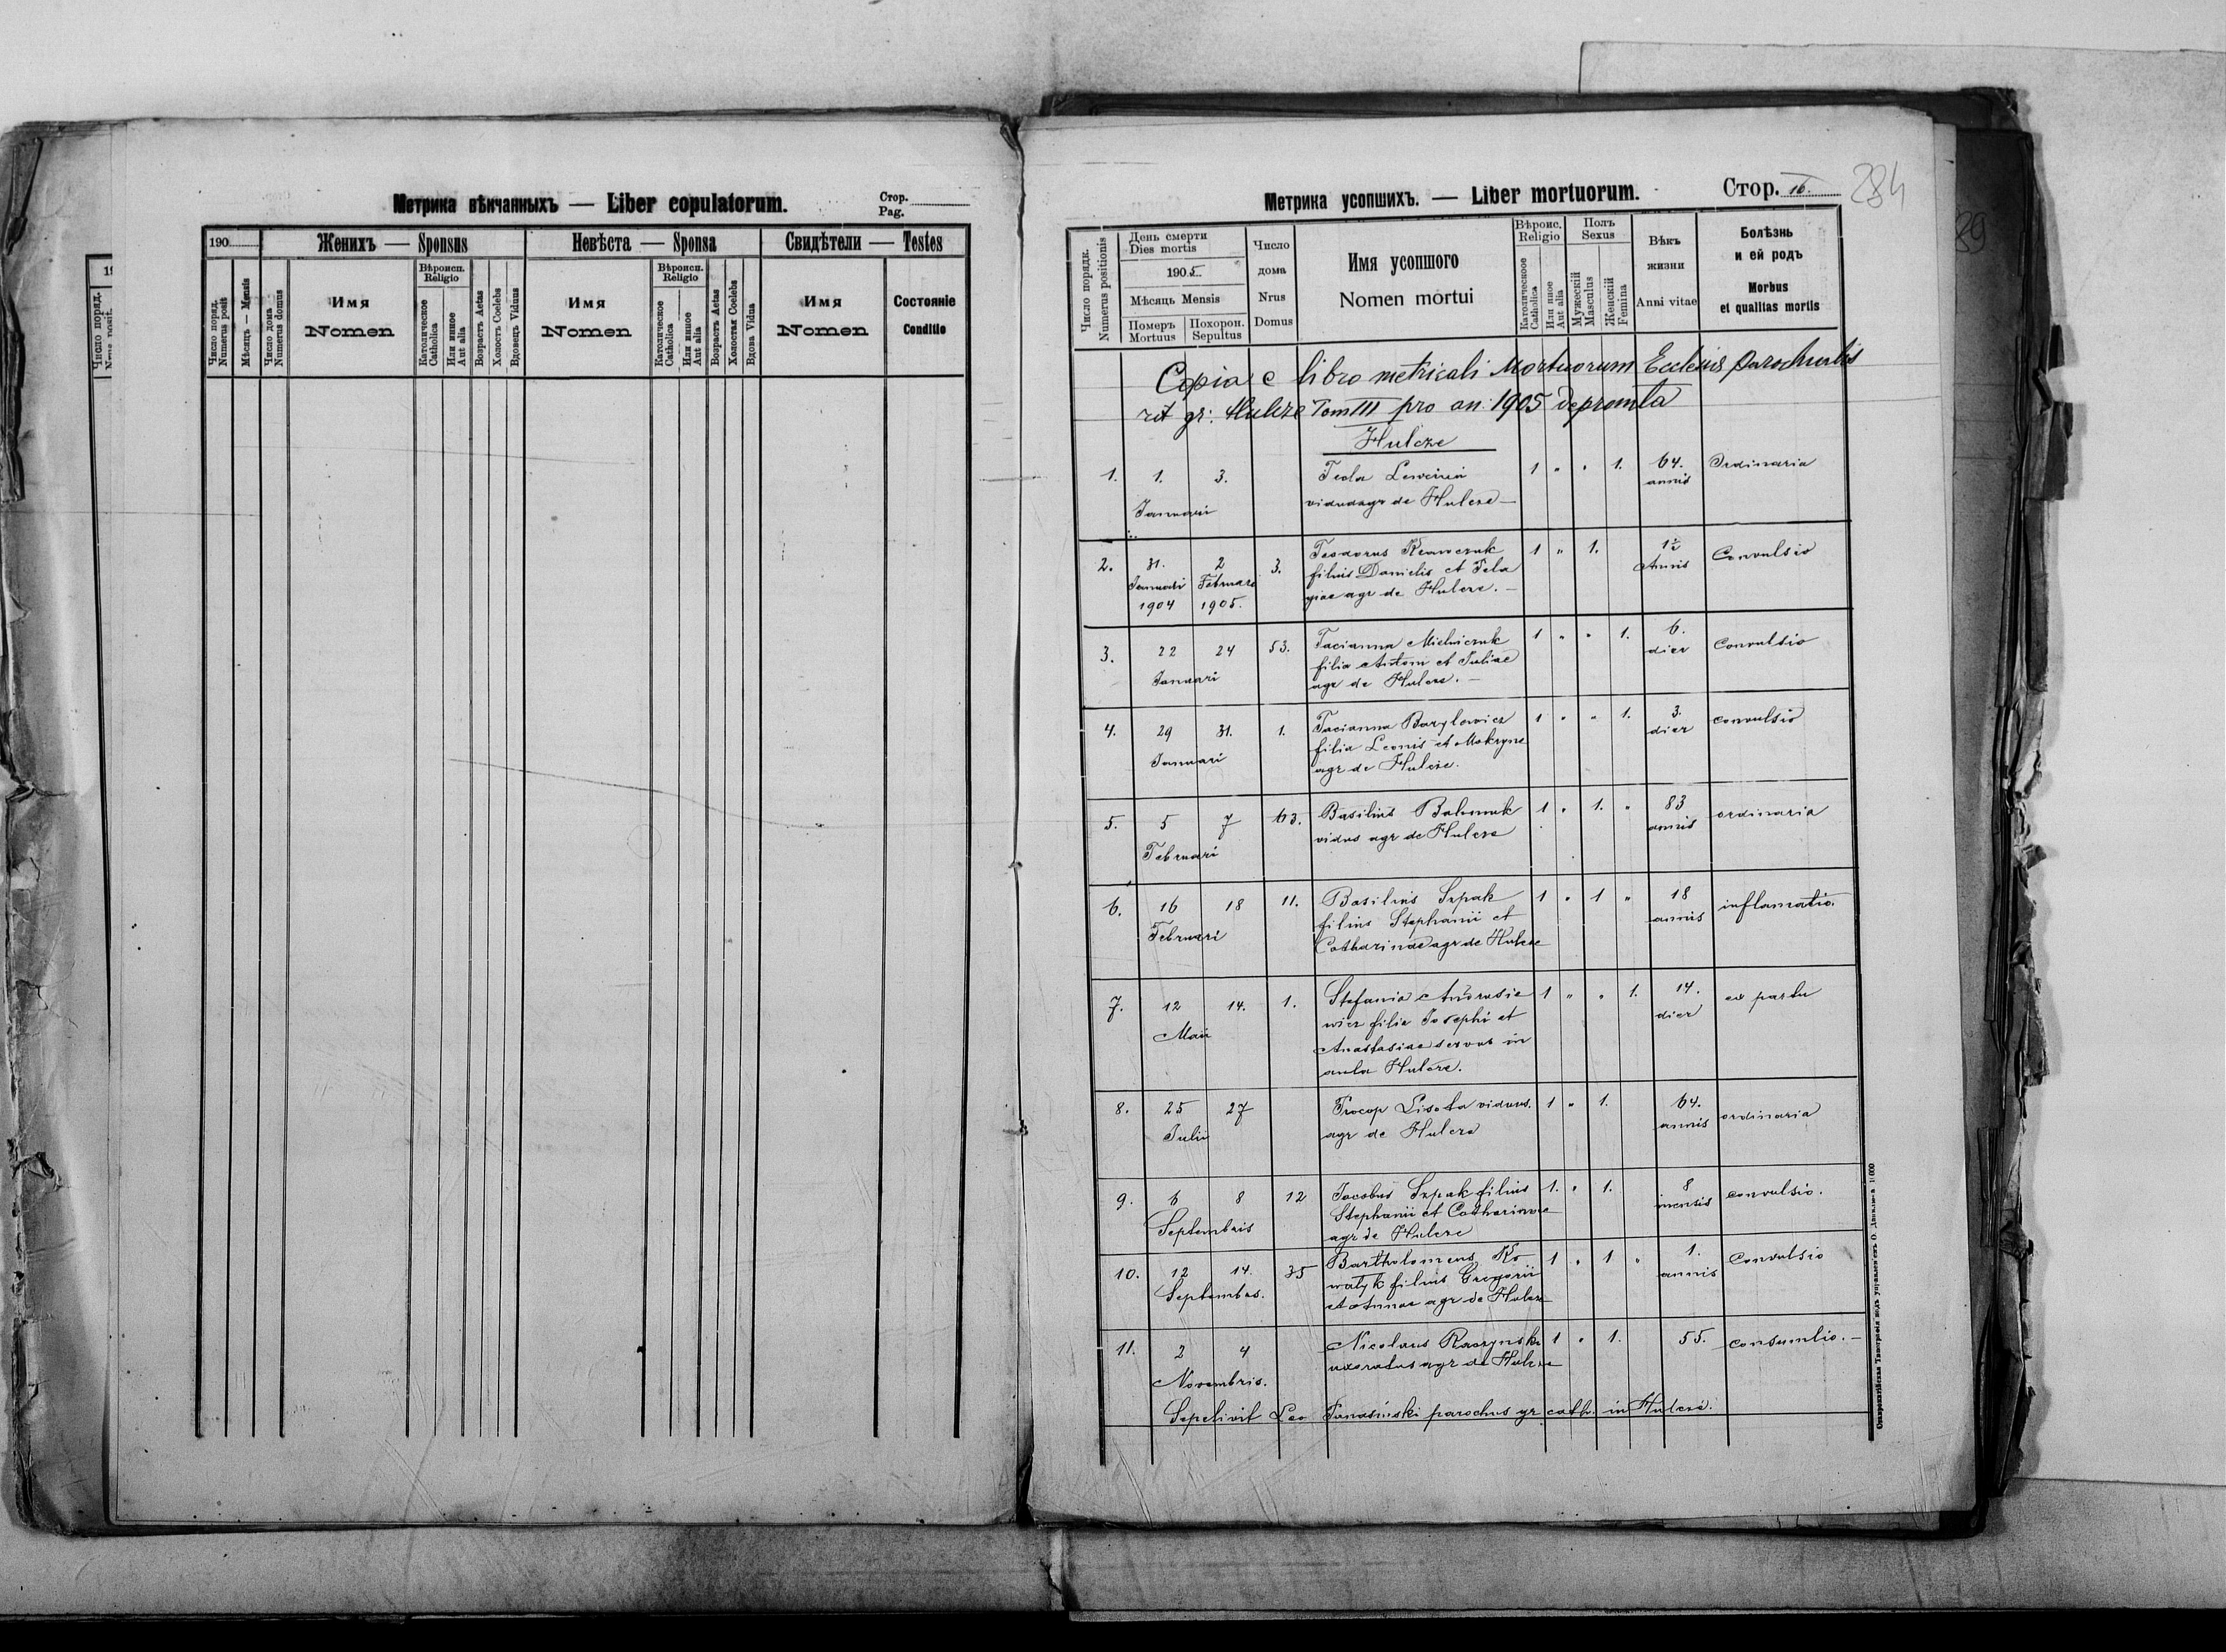 Метрика вѣнчанныхъ — Liber copulatorum.
Стор.
Pag.
190
Женихъ — Sponsus
Невѣста — Sponsa
Свидѣтели — Testes
Число поряд.
Numerus posit.
Мѣсяць — Mensis
Число дома
Numerus domus
Имя
Nomen
Вѣроисп.
Religio
Католическое
Catholica
Или инное
Aut alia
Возрастъ Aetas
Холость Coelebs
Вдовецъ Viduus
Имя
Nomen
Вѣроисп.
Religio
Католическое
Catholica
Или инное
Aut alia
Возрастъ Aetas
Холостая Coelebs
Вдова Vidua
Имя
Nomen
Состоянiе
Conditio
Число поряд.
Метрика усопшихъ. — Liber mortuorum.
Стор. 16.
284
Число порядк.
Numerus positionis
День смерти
Dies mortis
1905
Мѣсяць Mensis
Померъ
Mortuus
Похорон.
Sepultus
Число
дома
Nrus
Domus
Имя усопшого
Nomen mortui
Вѣроис.
Religio
Католическое
Catholica
Или иное
Aut alia
Полъ
Sexus
Мужескій
Masculus
Женскій
Femina
Вѣкъ
жизни
Anni vitae
Болѣзнь
и ей родъ
Morbus
et qualitas mortis
Copia e libro metricali Mortuorum Ecclesiae parochialis
rit gr: Hulcze Tom III pro an: 1905 depromta
Hulcze
1. 1. 3. Tecla 1 " " 1. 64. Ordinaria
Januari vidua agr de Hulcze — annis
2. 31. 2 3. Teodorus Krawczuk 1 " 1. 1½ Convulsio
Januari Februari filius Danielis et Pela annis
1904 1905. giae agr de Hulcze. —
3. 22 24 53. Tacianna Mielniczuk 1 " " 1. 6. Convulsio
Januari filia Antoni et Juliae dier
agr de Hulcze. —
4. 29 31. 1. Tacianna Barylowicz 1 " " 1. 3. convulsio
Januari filia Leonis et Mokryne dier
agr de Hulcze.
5. 5 7 63. Basilius 1 " 1. " 83 ordinaria
Februari vidus agr de Hulcze annis
6. 16 18 11. Basilius Szpak 1 " 1 " 18 inflamatio.
Februari filius Stephanii et annis
Catharinae agr de Hulcze
7. 12 14. 1. Stefania Andrusie 1 " " 1. 14. ex partu
Maii wicz filia Josephi et dier
Anastasiae servus in
aula Hulcze.
8. 25 27 Procop Lisota viduus. 1 " 1. 64. ordinaria
Julii agr de Hulcze annis
9. 6 8 12 Jacobus Szpak filius 1. " 1. 8 convulsio.
Septembris Stephanii et Catharinae mensis
agr de Hulcze
10. 12 14. 35 Bartholomeus Ko 1 " 1 " 1. Convulsio
Septembris. walyk filius Gregorii annis
et Annae agr de Hulcze
11. 2 4 Nicolaus Raczynski 1 " 1. 55. consumtio. —
Novembris. uxoratus agr de Hulcze
Sepelivit Leo Panasiński parochus gr. cath. in Hulcze.